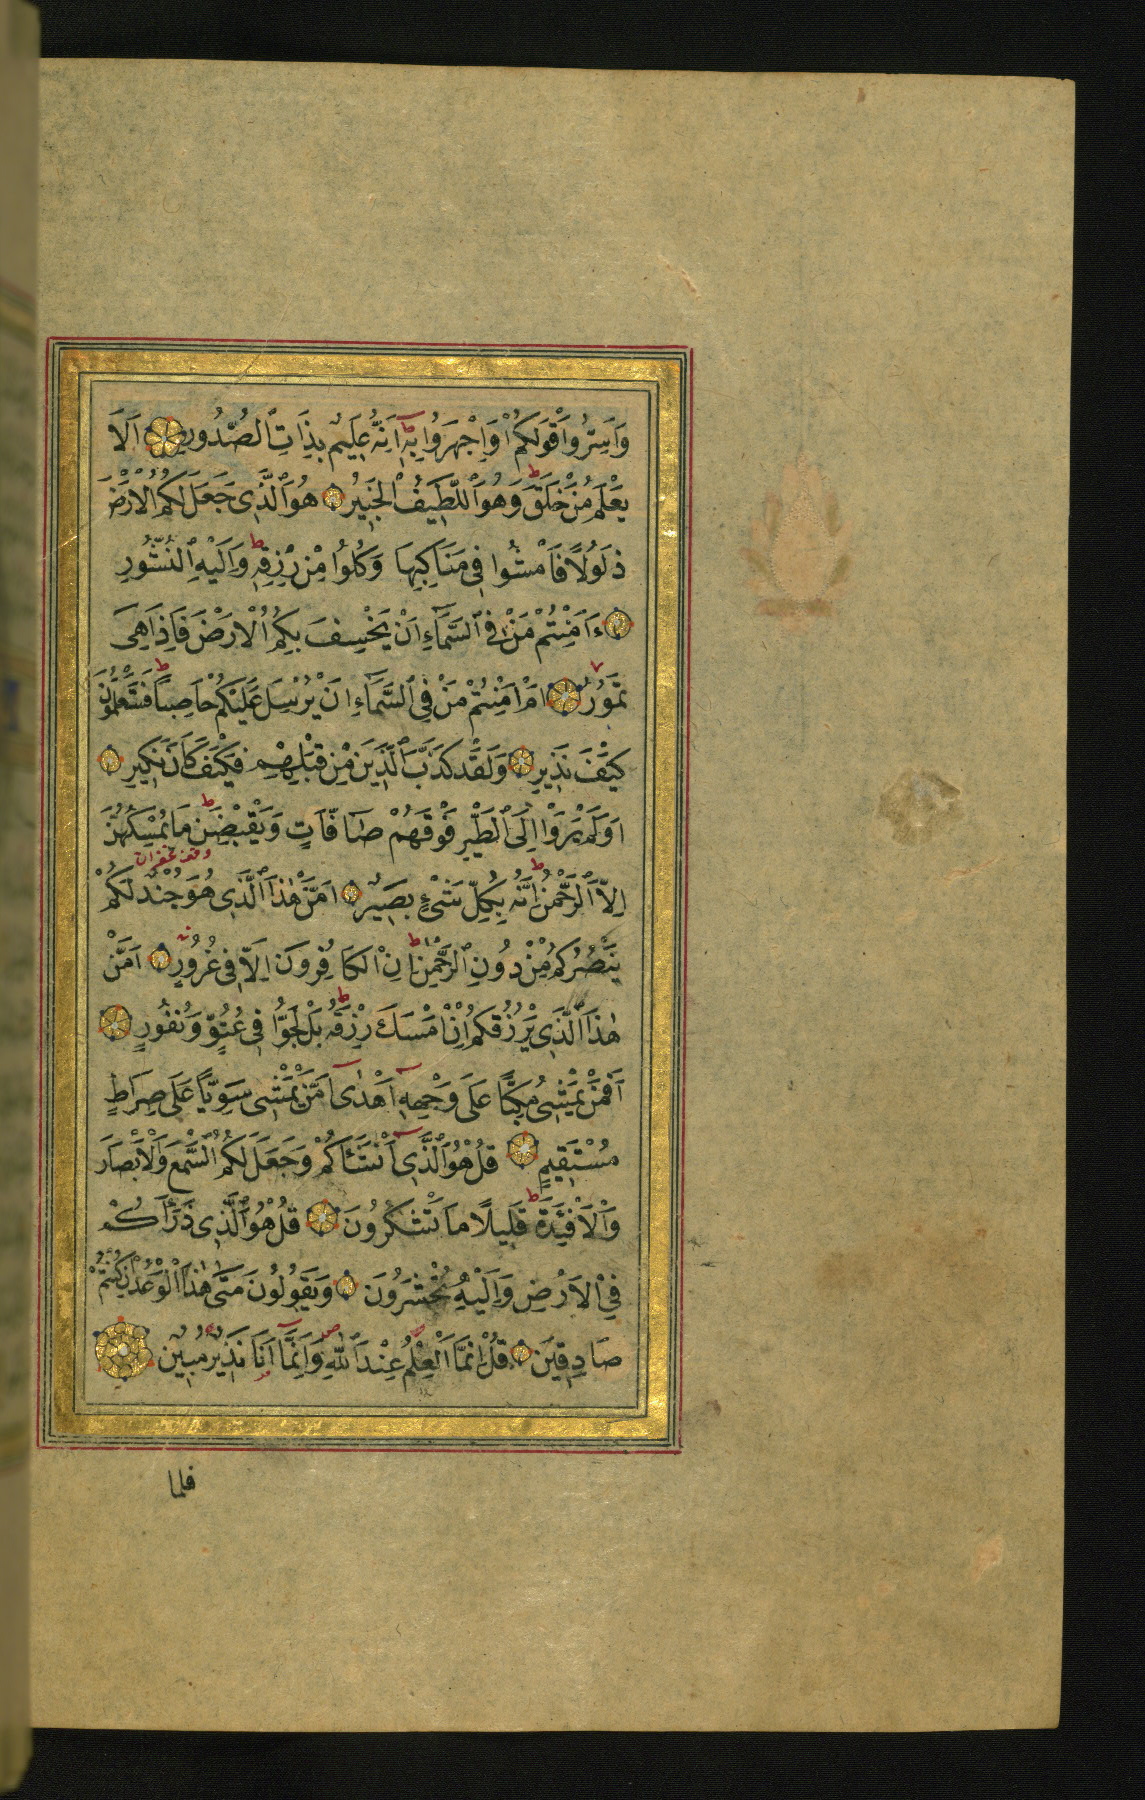 وَاَسِرُّوا قَوْلَكُمْ اَوِاجْهَرُوا بِهٖ اِنَّهُ عَلِيمٌ بِذَاتِ الصُّدُورِ اَلَا
يَعْلَمُ مَنْ خَلَقَ وَهُوَ اللَّطِيفُ الْخَبِيرُ هُوَ الَّذِى جَعَلَ لَكُمُ الْاَرْضَ
ذَلُولًا فَامْشُوا فِى مَنَاكِبِهَا وَكُلُوا مِنْ رِزْقِهٖ وَاِلَيْهِ النُّشُورِ
ءَاَمِنْتُمْ مَنْ فِى السَّمَاءِ اَنْ يَخْسِفَ بِكُمُ الْاَرْضَ فَاِذَا هِىَ
تَمُورُ اَمْ اَمِنْتُمْ مَنْ فِى السَّمَاءِ اَنْ يُرْسِلَ عَلَيْكُمْ حَاصِبًا فَسَتَعْلَمُونَ
كَيْفَ نَذِيرِ وَلَقَدْ كَذَّبَ الَّذِينَ مِنْ قَبْلِهِمْ فَكَيْفَ كَانَ نَكِيرِ
اَوَلَمْ يَرَوْا اِلَى الطَّيْرِ فَوْقَهُمْ صَافَّاتٍ وَيَقْبِضْنَ مَا يُمْسِكُهُنَّ
وقف غفران
اِلَّا الرَّحْمٰنُ اِنَّهُ بِكُلِّ شَىْءٍ بَصِيرٌ اَمَّنْ هٰذَا الَّذِى هُوَ جُنْدٌ لَكُمْ
يَنْصُرُكُمْ مِنْ دُونِ الرَّحْمٰنِ اِنِ الْكَافِرُونَ اِلَّا فِى غُرُورٍ اَمَّنْ
هٰذَا الَّذِى يَرْزُقُكُمْ اِنْ اَمْسَكَ رِزْقَهُ بَلْ لَجُّوا فِى عُتُوٍّ وَنُفُورٍ
اَفَمَنْ يَمْشِى مُكِبًّا عَلَى وَجْهِهٖ اَهْدٰى اَمَّنْ يَمْشِى سَوِيًّا عَلَى صِرَاطٍ
مُسْتَقِيمٍ قُلْ هُوَ الَّذِى اَنْشَاَكُمْ وَجَعَلَ لَكُمُ السَّمْعَ وَالْاَبْصَارَ
وَالْاَفْئِدَةَ قَلِيلًا مَا تَشْكُرُونَ قُلْ هُوَ الَّذِى ذَرَاَكُمْ
فِى الْاَرْضِ وَاِلَيْهِ تُحْشَرُونَ وَيَقُولُونَ مَتٰى هٰذَا الْوَعْدُ اِنْ كُنْتُمْ
صَادِقِينَ قُلْ اِنَّمَا الْعِلْمُ عِنْدَ اللّٰهِ وَاِنَّمَا اَنَا نَذِيرٌ مُبِينٌ
فلما